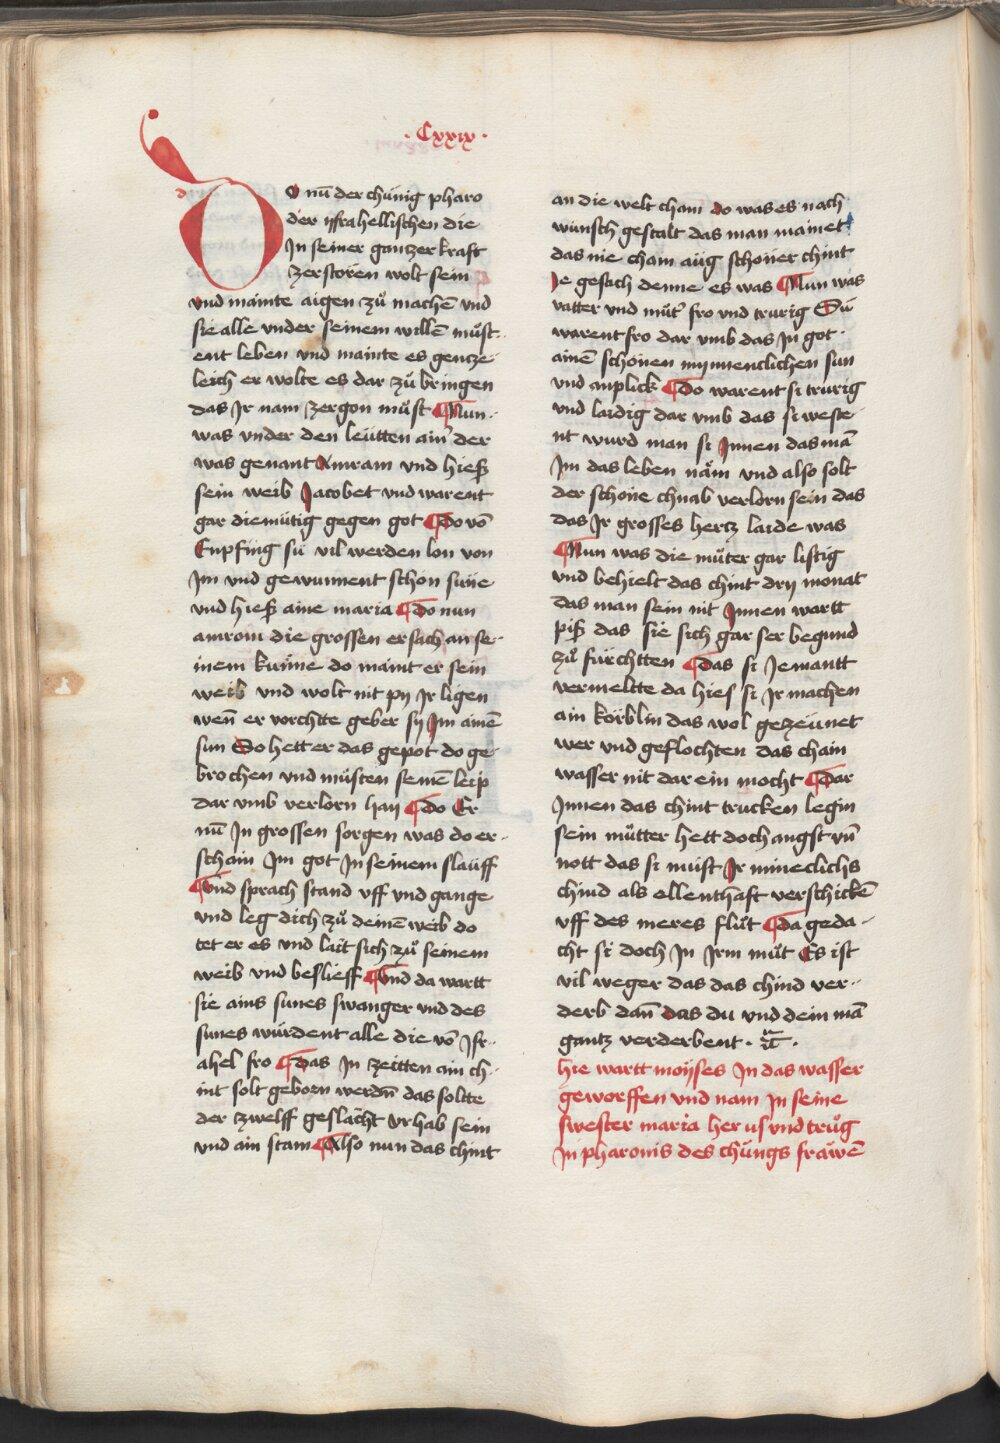 · Cxxix ·
DO nū der chünig pharo
der yſrahelliſchen die
In ſeiner gantzer kraft
zerſtören wolt ſein
vnd mainte aigen zů machē vnd
ſie alle vnder ſeinem willē můſt-
ent leben vnd mainte es gentze-
leich er wolte es dar zů bringen
das Jr nam zergon müſt ¶ Nun
was vnder den leütten ainˀ der
was genant Amram vnd hieſz
ſein weib Jacobet vnd warent
gar diemütig gegen got ¶ Do vō
Enpfing ſü vil werden lon von
Jm vnd gewunnent ſchon ſüne
vnd hieſz aine maria ¶ Do nun
amrom die groſſen er ſach an ſe-
inem kunne do maint er ſein
weib vnd wolt nit py Jr ligen
wen̄ er vorchtte geber ſy Jm ainē
ſun So hett er das gepot do ge-
brochen vnd müſten ſeinē leip
dar vmb verlorn han ¶ Do Er
nū Jn groſſen ſorgen was do er-
ſchain Jm got Jn ſeinem ſlauff
¶ Vnd ſprach ſtand vff vnd gange
vnd leg dich zů deinē weib do
tet er es vnd lait ſich zů ſeinem
weib vnd beſlieff ¶ Vnd da wartt
ſie ains ſunes ſwanger vnd des
ſunes würdent alle die vō Jſr-
ahel fro ¶ Das Jn zeitten ain ch-
int ſolt geborn werdn̄ das ſoltte
der tzwelff geſlächt vrhab ſein
vnd ain ſtam ¶ Alſo nun das chint
an die welt cham do was es nach
wunſch geſtalt das man mainet
das nie cham aüg ſchoner chint
Je geſach denne es was ¶ Nun was
vatter vnd můtˀ fro vnd trurig Sü
warent fro dar vmb das Jn got
ainē ſchönen mynneclichen ſun
vnd anplick ¶ Do warent ſi trurig
vnd laidig dar vmb das ſi weſte-
nt wurd man ſi Jnnen das mā
Jm das leben näm vnd alſo ſolt
der ſchone chnab verlorn ſein das
das Jr groſſes hertz laide was
¶ Nun was die můter gar liſtig
vnd behielt das chint dry monat
das man ſein nit Jnnen wartt
piſz das ſie ſich gar ſer begund
zů fürchtten ¶ Das ſi Jemantt
vermeltte da hieſ ſi Jr machen
ain körblin das wol gezeünet
wer vnd geflochten das chain
waſſer nit dar ein mocht ¶ Dar
Jnnen das chint trucken legin
ſein můtter hett doch angſt vn̄
nott das ſi müſt Jr mineclichs
chind als ellenthaft verſchickē
vff des meres flůt ¶ Da geda-
cht ſi doch Jn Jrm můt Es iſt
vil weger das das chind ver-
derb dan̄ das du vnd dein mā
gantz verderbent ·
hie wartt moyſes Jn das waſſer
geworffen vnd nam Jn ſeine
ſweſter maria her us vnd trůg
Jn pharonis des chüngs frawē